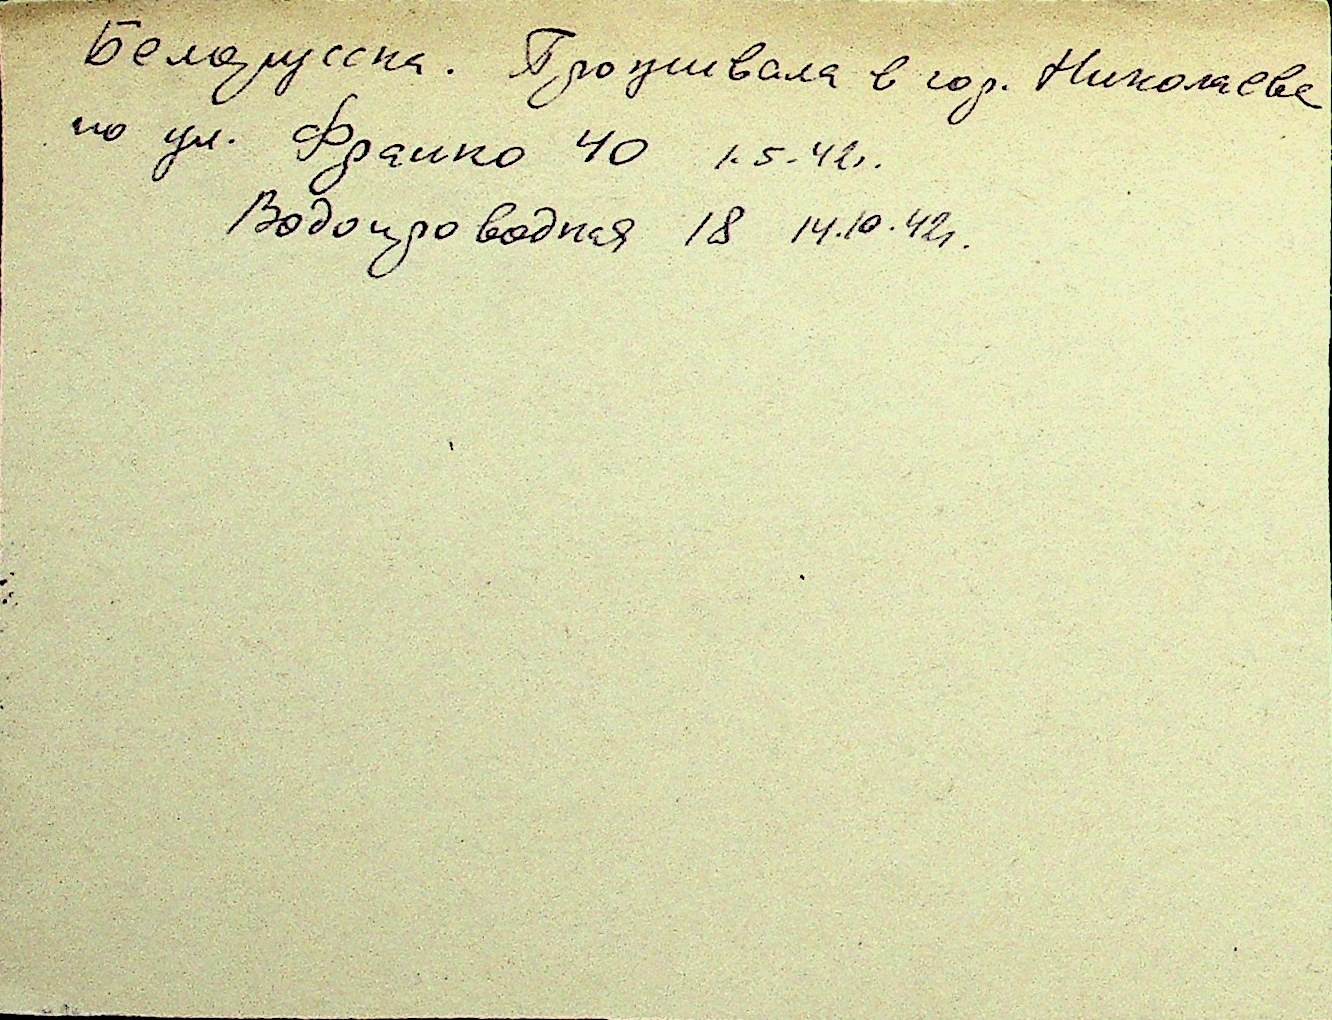 Белорусска. Проживала в гор. Николаеве
по ул. Франко 40 1.5.42г.
Водопроводная 18 14.10.42г.